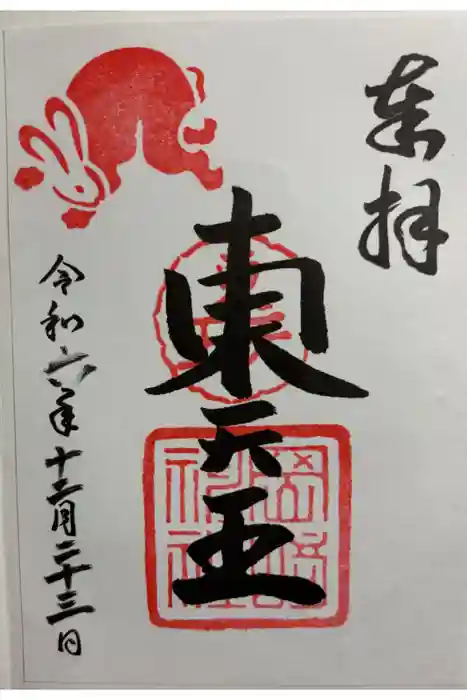 奉拝
東天王
岡崎
神社
令和六年十二月二十三日